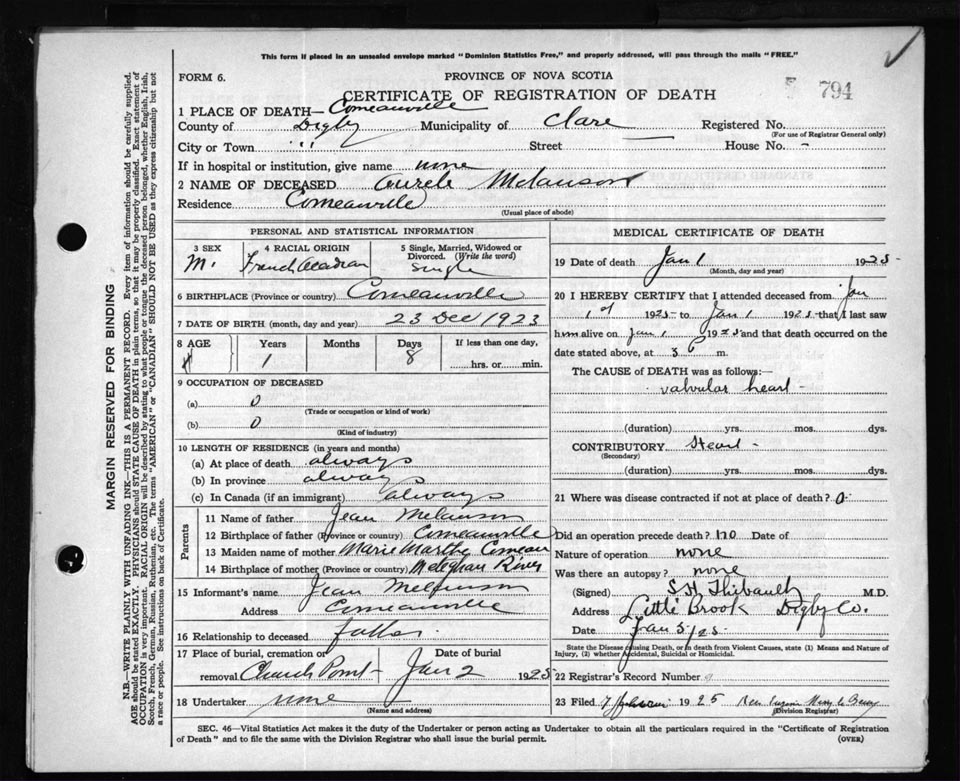 This form if placed in an unsealed envelope marked "Dominion Statistics Free," and properly addressed, will pass through the mails "FREE."
FORM 6.
PROVINCE OF NOVA SCOTIA
CERTIFICATE OF REGISTRATION OF DEATH
794
1 PLACE OF DEATH— Comeauville
County of Digby Municipality of Clare Registered No.
(For use of Registrar General only)
City or Town " Street House No. -
If in hospital or institution, give name none
2 NAME OF DECEASED Aurele Melanson
Residence Comeauville
(Usual place of abode)
PERSONAL AND STATISTICAL INFORMATION
3 SEX 4 RACIAL ORIGIN 5 Single, Married, Widowed or Divorced. (Write the word)
M. French Acadian Single
6 BIRTHPLACE (Province or country) Comeauville
7 DATE OF BIRTH (month, day and year) 23 Dec 1923
8 AGE Years Months Days If less than one day,
1 8 hrs. or min.
9 OCCUPATION OF DECEASED
(a) 0
(Trade or occupation or kind of work)
(b) 0
(Kind of industry)
10 LENGTH OF RESIDENCE (in years and months)
(a) At place of death always
(b) In province always
(c) In Canada (if an immigrant) always
Parents
11 Name of father Jean Melanson
12 Birthplace of father (Province or country) Comeauville
13 Maiden name of mother Marie Marthe Comeau
14 Birthplace of mother (Province or country) Meteghan River
15 Informant's name Jean Melanson
Address Comeauville
16 Relationship to deceased father
17 Place of burial, cremation or removal Church Point Date of burial Jan 2 1925
18 Undertaker none
(Name and address)
MEDICAL CERTIFICATE OF DEATH
19 Date of death Jan 1 1925
(Month, day and year)
20 I HEREBY CERTIFY that I attended deceased from Jan
1st 1925 to Jan 1 1925 that I last saw
him alive on Jan 1 1925 and that death occurred on the
date stated above, at 3 m.
The CAUSE of DEATH was as follows:
valvular heart -
(duration) yrs. mos. dys.
CONTRIBUTORY Heart -
(Secondary)
(duration) yrs. mos. dys.
21 Where was disease contracted if not at place of death? 0
Did an operation precede death? no Date of
Nature of operation none
Was there an autopsy? none
(Signed) S.H. Thibault M.D.
Address Little Brook Digby Co.
Date Jan 5/25
State the Disease causing Death, or in death from Violent Causes, state (1) Means and Nature of Injury, (2) whether Accidental, Suicidal or Homicidal.
22 Registrar's Record Number 9
23 Filed 7 1925 Rev Eugene
(Division Registrar)
SEC. 46—Vital Statistics Act makes it the duty of the Undertaker or person acting as Undertaker to obtain all the particulars required in the "Certificate of Registration
of Death" and to file the same with the Division Registrar who shall issue the burial permit. (OVER)
MARGIN RESERVED FOR BINDING
N.B.—WRITE PLAINLY WITH UNFADING INK—THIS IS A PERMANENT RECORD. Every item of information should be carefully supplied.
AGE should be stated EXACTLY. PHYSICIANS should STATE CAUSE OF DEATH in plain terms, so that it may be properly classified. Exact statement of
OCCUPATION is very important. RACIAL ORIGIN will be described by stating to what people or tongue the deceased person belonged, whether English, Irish,
Scotch, French, German, Russian, Ruthenian, etc. The terms "AMERICAN" or "CANADIAN" SHOULD NOT BE USED as they express citizenship but not
a race or people. See instructions on back of Certificate.